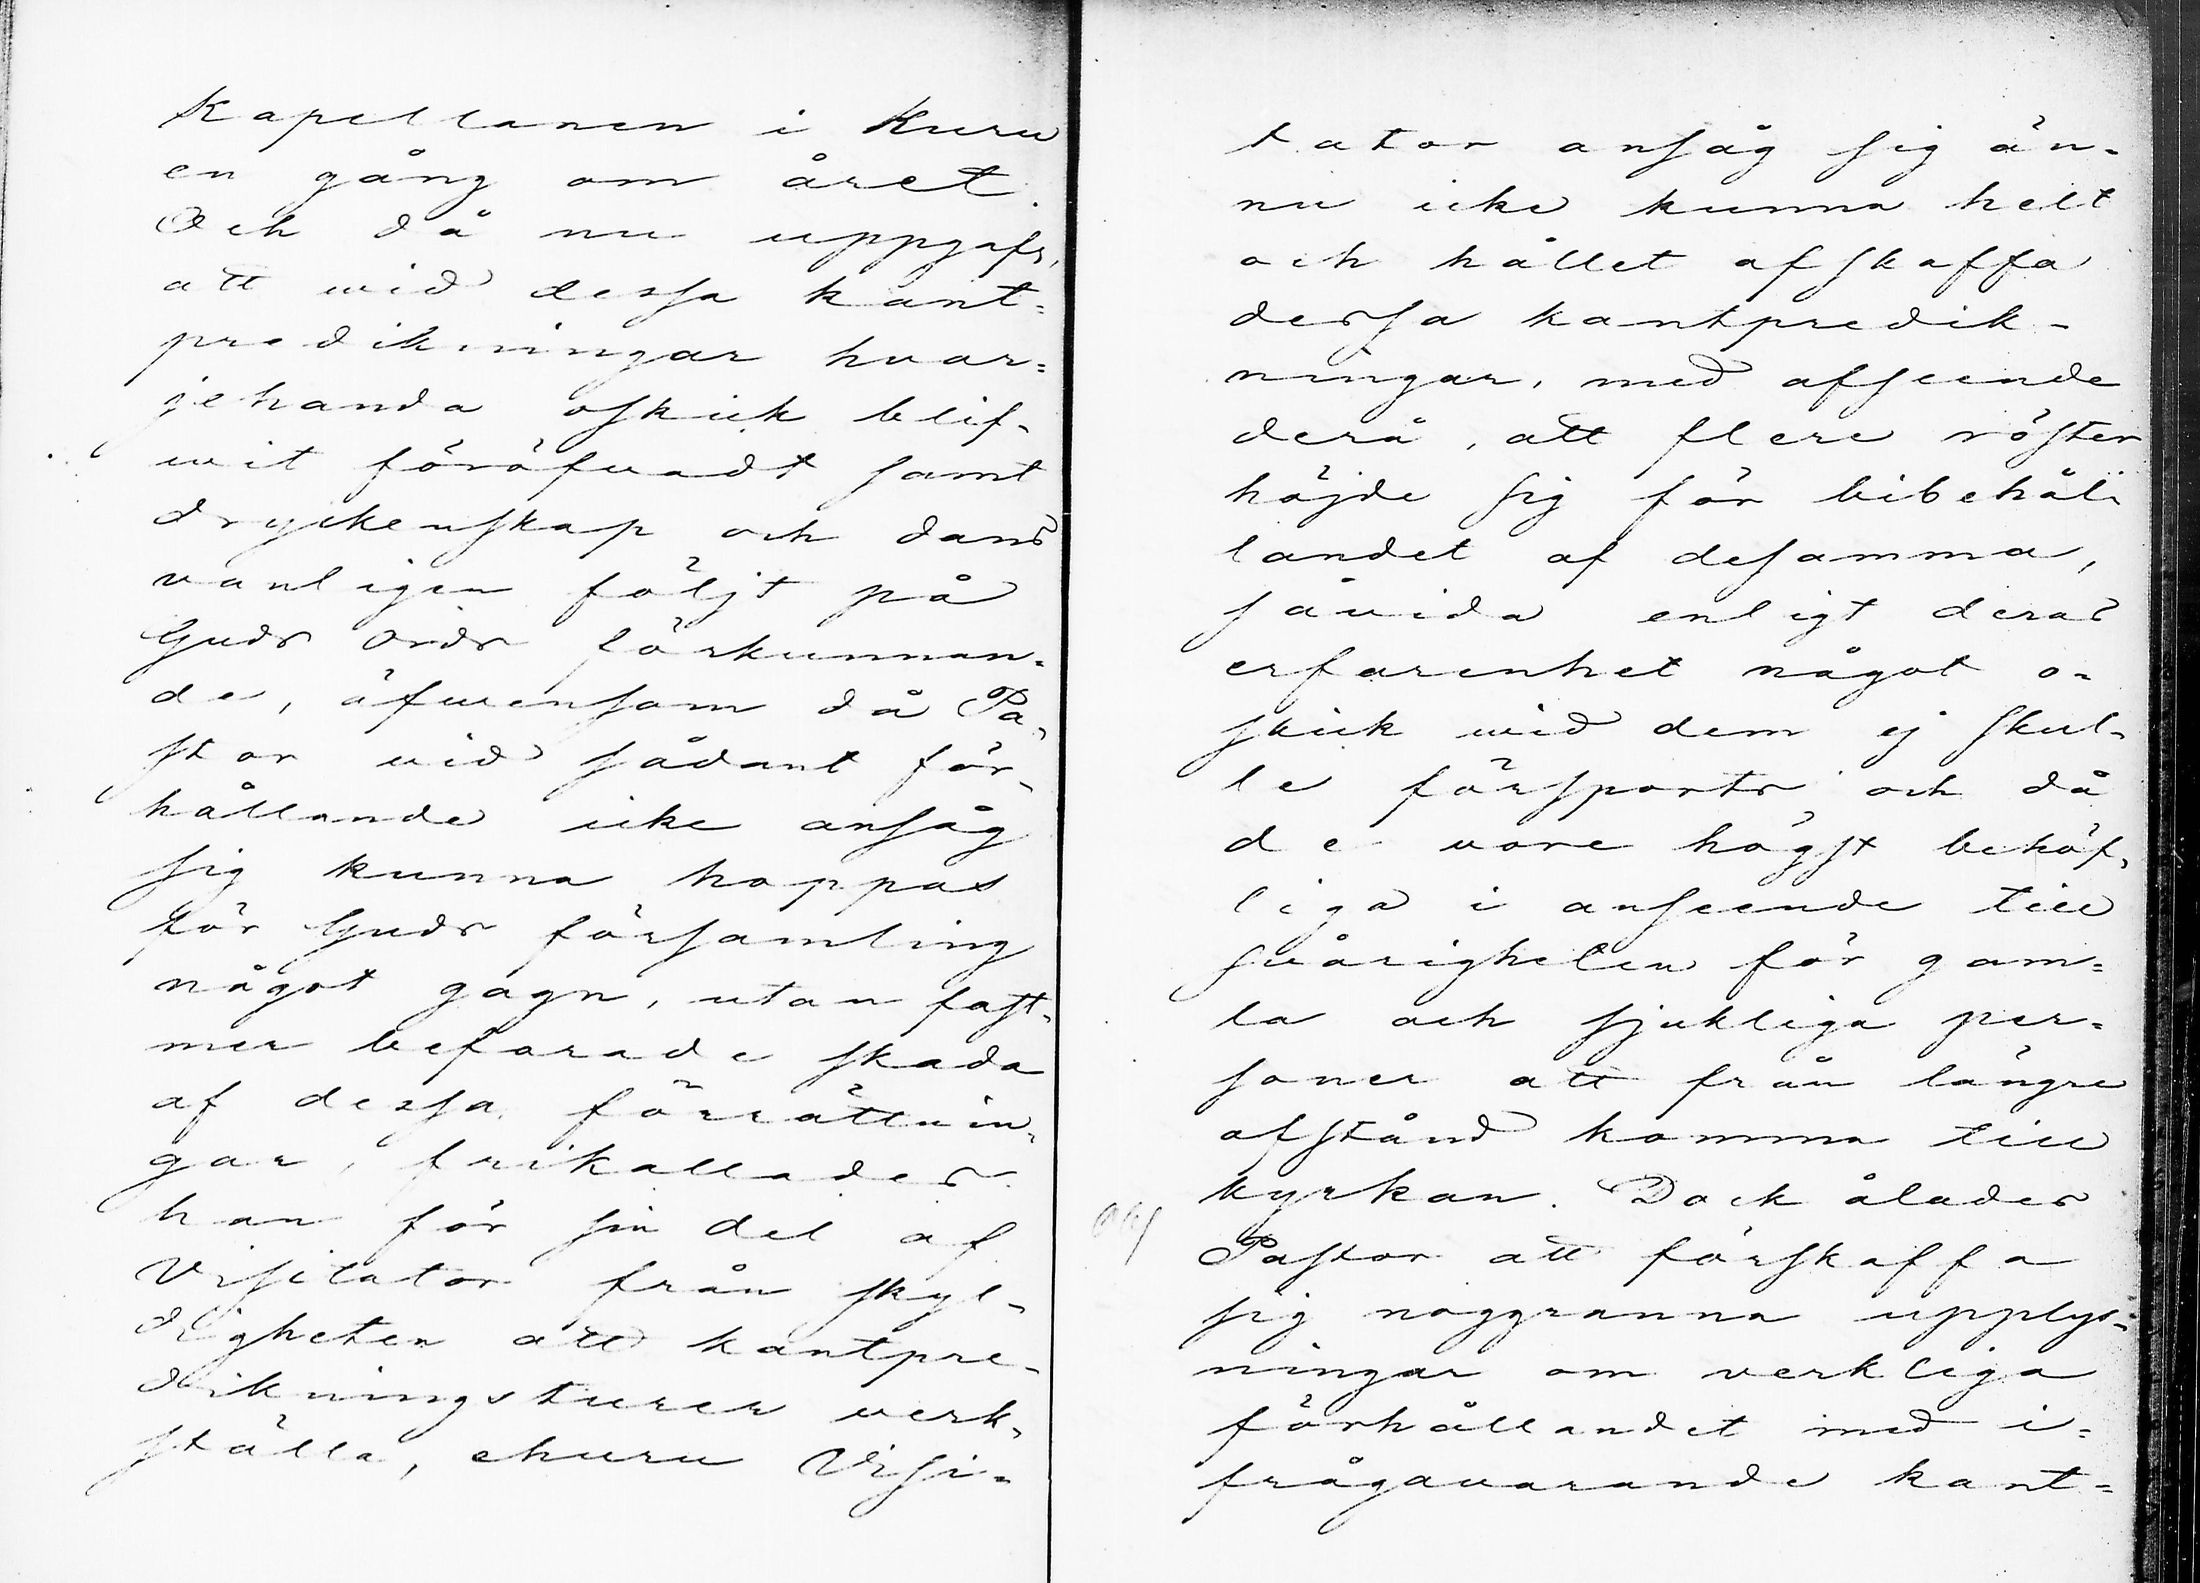 Kapellanen i Kuru
en gång om året.
Och då nu uppgafs,
att wid dessa kant=
predikningar hvar=
jehanda oskick blif-
wit föröfvadt samt
dryckenskap och dans
vanligen följt på
Guds Ords förkunnan-
de, äfwensom då Pa-
stor vid sådant för-
hållande icke ansåg
sig kunna hoppas
för Guds församling
något gagn, utan fast-
mer befarade skada
af dessa förrättnin-
gar, frikallades
han för sin del af
Visitator från skyl-
digheten att kantpre-
dikningsturer verk-
ställa, ehuru Visi-
tator ansåg sig än-
nu icke kunna helt
och hållet afskaffa
dessa kantpredik-
ningar, med afseende
derå, att flere röster
höjde sig för bibehål-
landet af desamma,
såvida enligt deras
erfarenhet något o-
skick wid dem ej skul-
le försports och då
de vore högst behöf-
liga i anseende till
svårigheten för gam=
la och sjukliga per=
soner att från längre
afstånd komma till
kyrkan. Dock ålades
Pastor att förskaffa
sig noggranna upplys=
ningar om verkliga
förhållandet med i=
frågavarande kant=